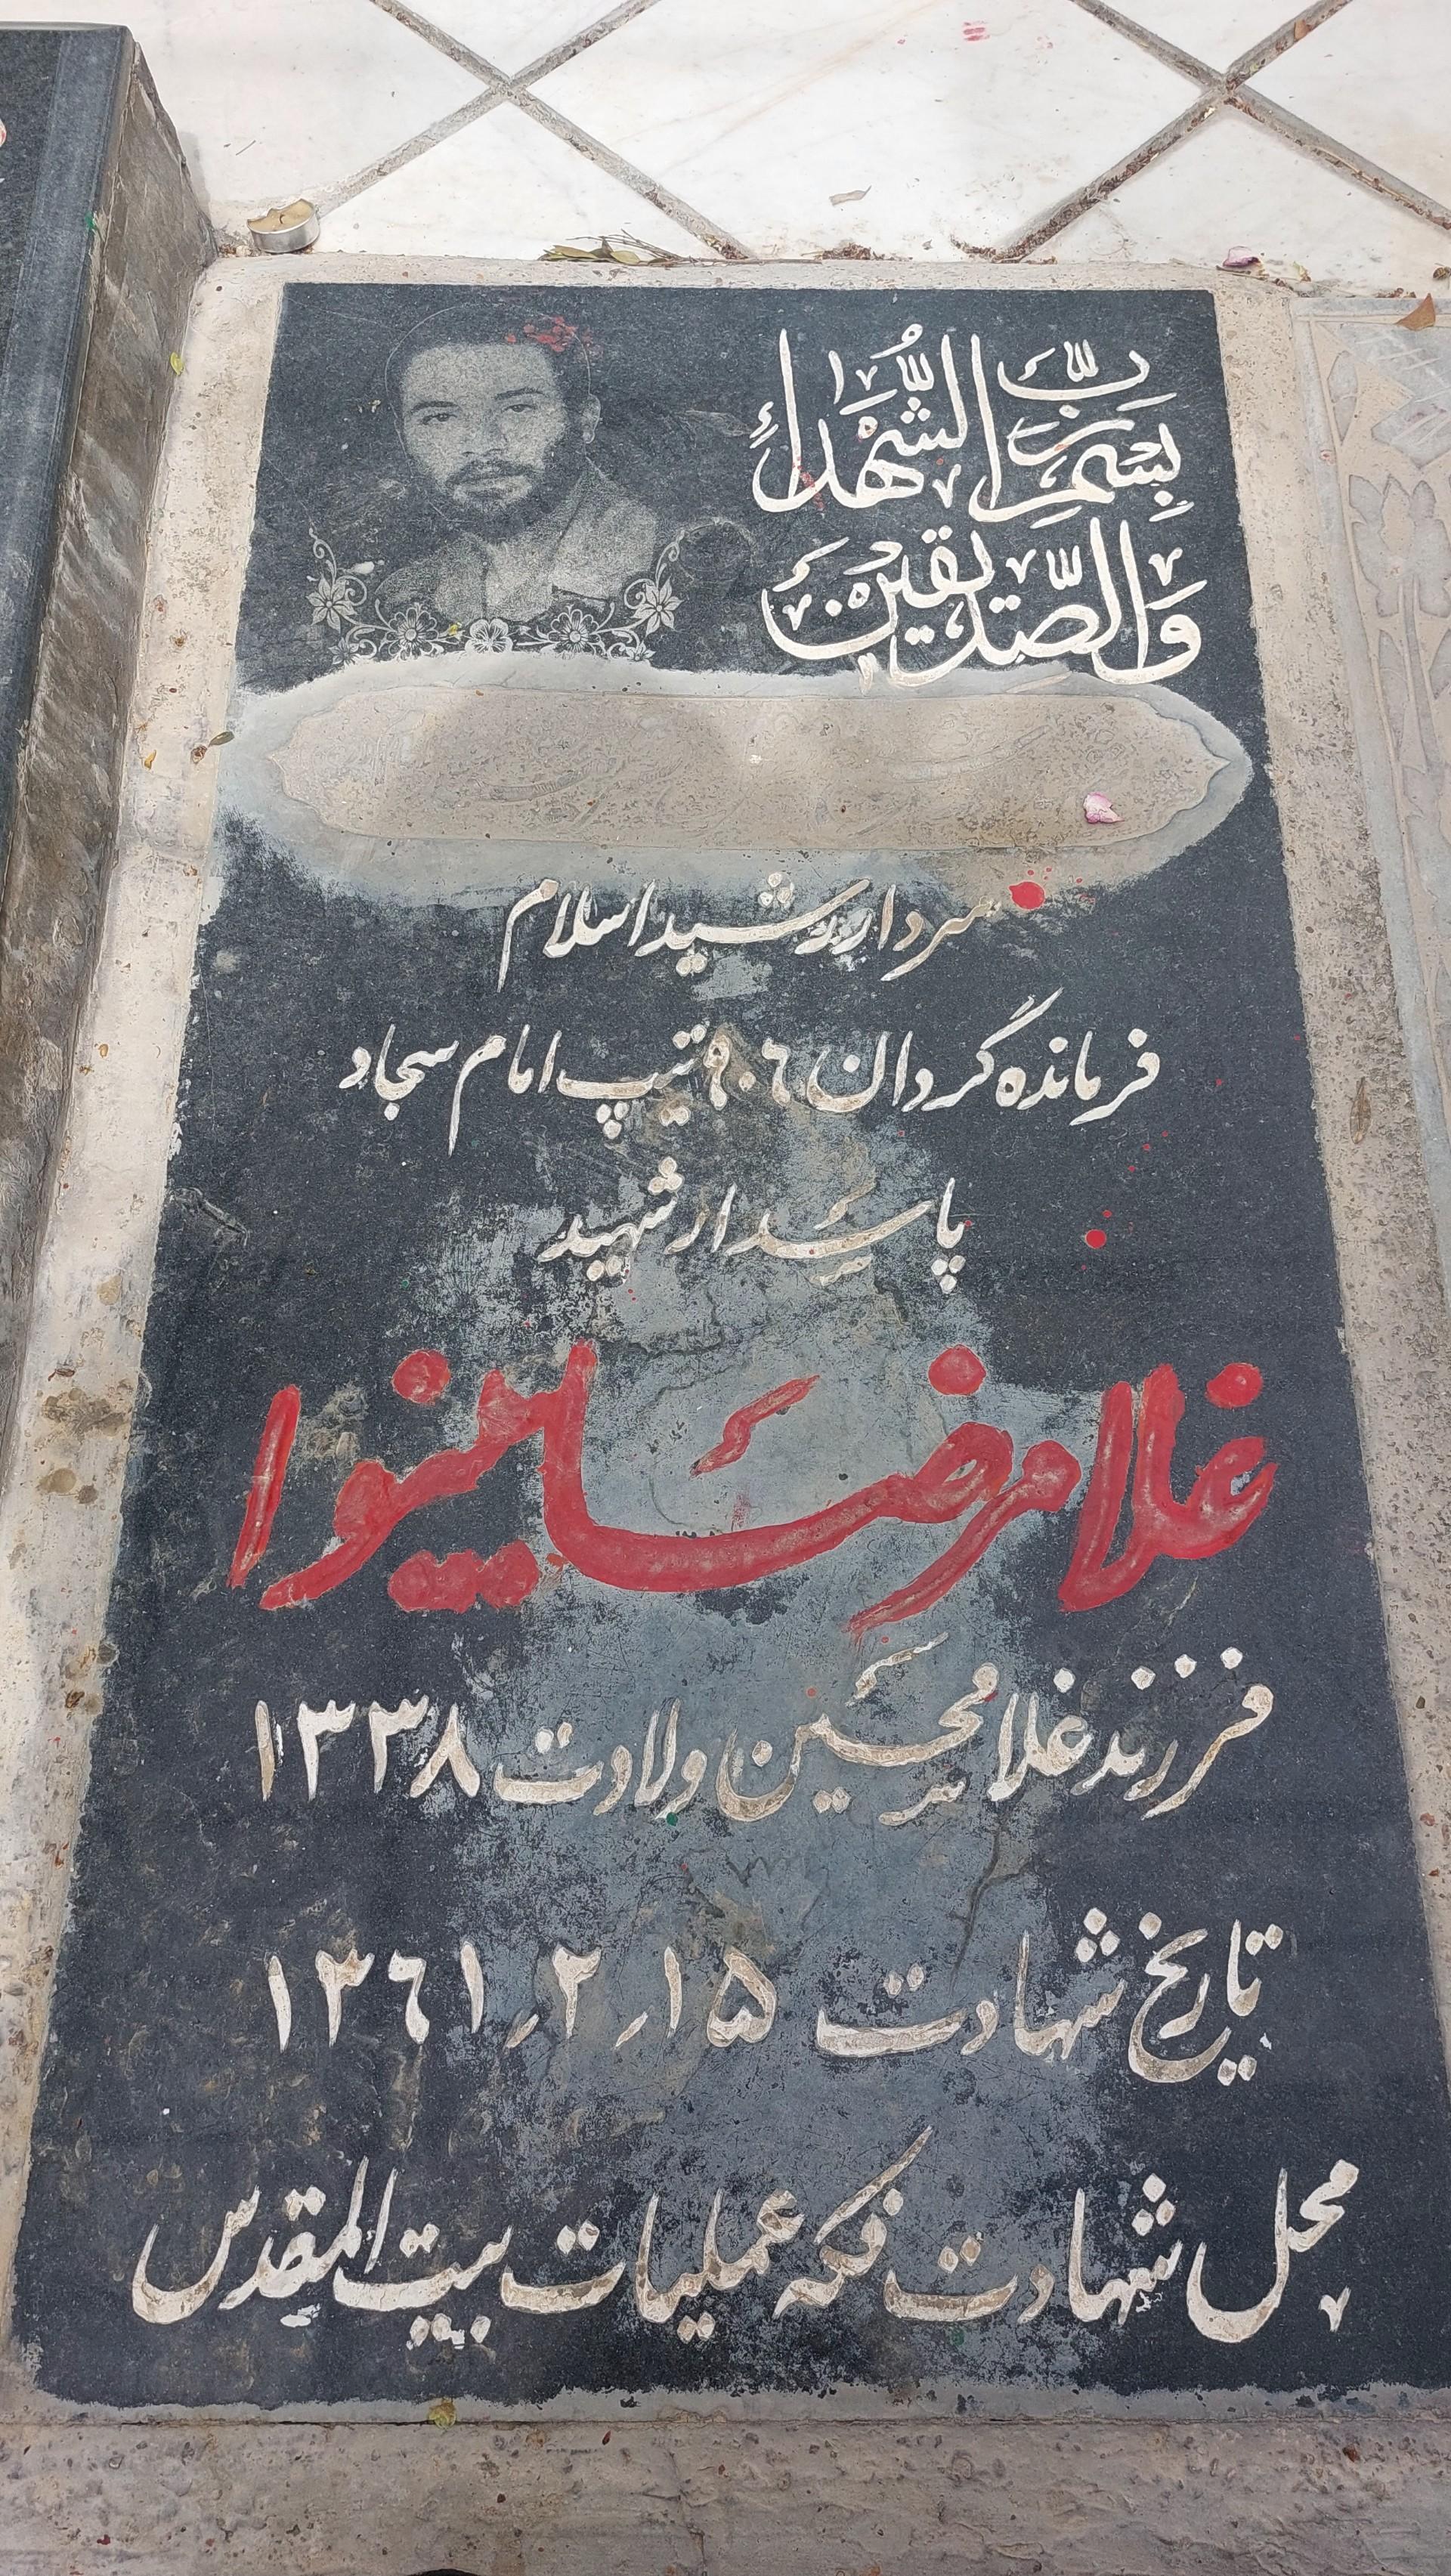 بِسْمِ رَبِّ الشُّهَداءِ
وَالصِّدّیقینَ
سردار رشید اسلام
فرمانده گردان ٩٠٦ تیپ امام سجاد
پاسدار شهید
غلامرضا بینوا
فرزند غلامحسین ولادت ۱۳۳۸
تاریخ شهادت ۱۵٫۲٫۱۳٦۱
محل شهادت فکه عملیات بیت المقدس